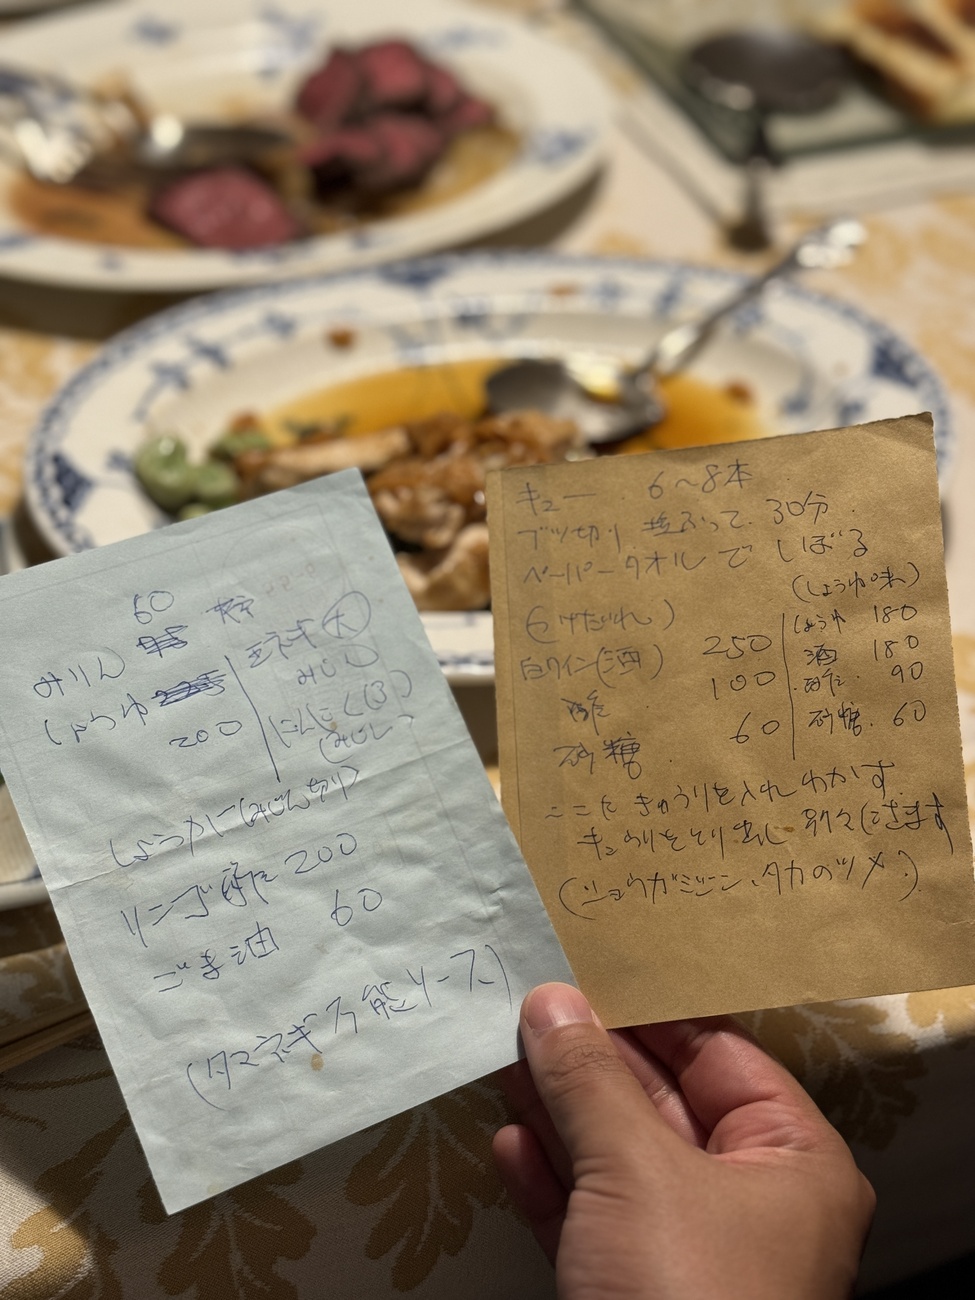 60
みりん
しょうゆ
200
玉ネギ(大)
みじん
にんにく(3)
(みじん)
しょうがに(みじん切り)
リンゴ酢 200
ごま油 60
(タマネギ万能ソース)
キュー 6〜8本
ブツ切り 塩ふって 30分
ペーパータオルでしぼる
(つけだれ)
白ワイン(酒) 250
酢 100
砂糖 60
(しょうゆ味)
しょうゆ 180
酒 180
酢 90
砂糖 60
ここに きゅうりを入れ わかす
キュウリをとり出し 別々にさます
(ショウガミジン、タカのツメ)